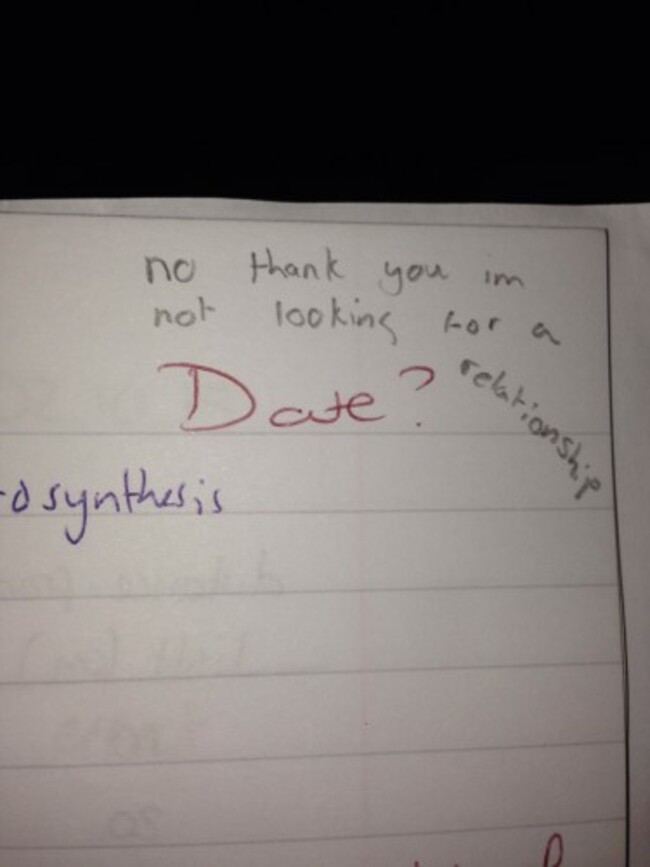 no thank you im
not looking for a
relationship
Date?
osynthesis